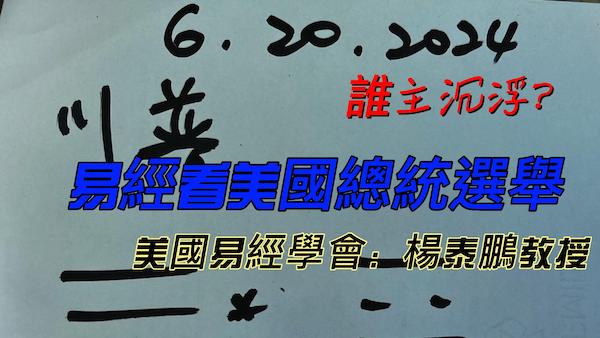 6.20.2024
誰主沉浮?
川普
易經看美國總統選舉
美國易經學會：楊泰鵬教授